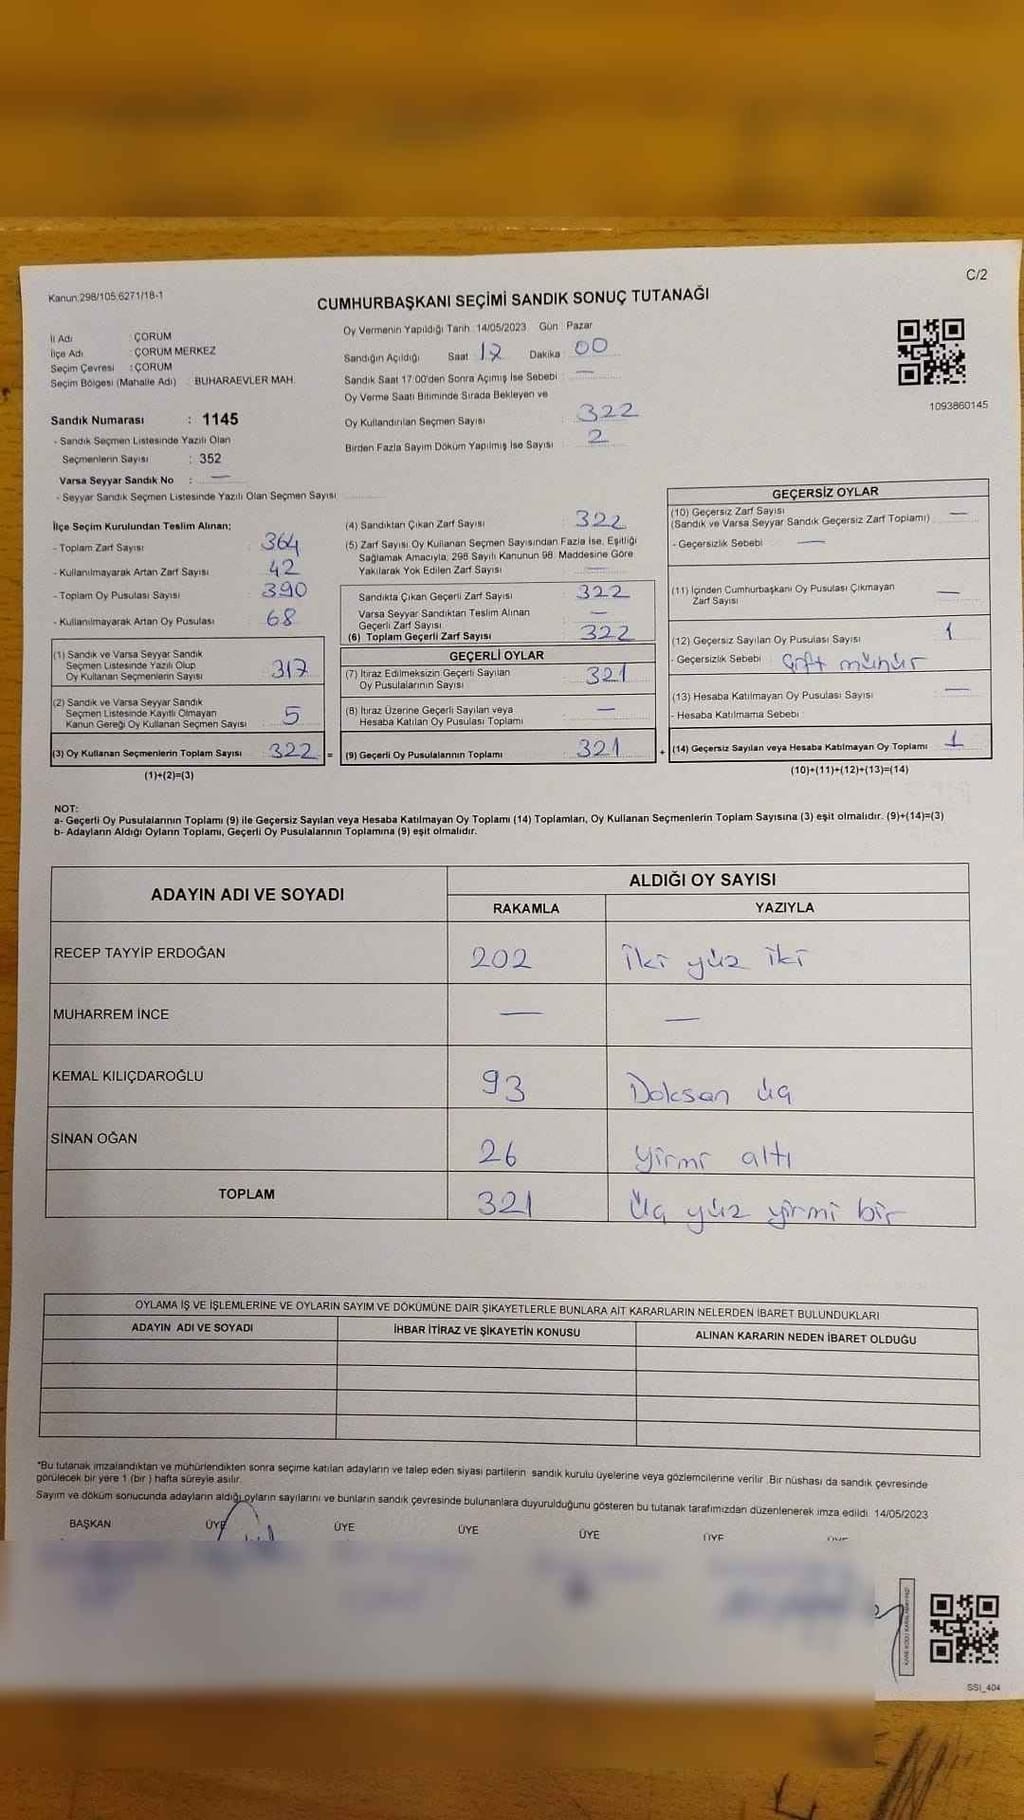 C/2
Kanun.298/105:6271/18-1
CUMHURBAŞKANI SEÇİMİ SANDIK SONUÇ TUTANAĞI
İl Adı : ÇORUM
İlçe Adı : ÇORUM MERKEZ
Seçim Çevresi : ÇORUM
Seçim Bölgesi (Mahalle Adı) : BUHARAEVLER MAH.
Sandık Numarası : 1145
- Sandık Seçmen Listesinde Yazılı Olan
Seçmenlerin Sayısı : 352
Varsa Seyyar Sandık No : —
- Seyyar Sandık Seçmen Listesinde Yazılı Olan Seçmen Sayısı
Oy Vermenin Yapıldığı Tarih : 14/05/2023 Gün : Pazar
Sandığın Açıldığı Saat 17 Dakika : 00
Sandık Saat 17:00'den Sonra Açımış İse Sebebi : —
Oy Verme Saati Bitiminde Sırada Bekleyen ve
Oy Kullandırılan Seçmen Sayısı : 322
Birden Fazla Sayım Döküm Yapılmış İse Sayısı : 2
1093860145
İlçe Seçim Kurulundan Teslim Alınan;
- Toplam Zarf Sayısı : 364
- Kullanılmayarak Artan Zarf Sayısı : 42
- Toplam Oy Pusulası Sayısı : 390
- Kullanılmayarak Artan Oy Pusulası : 68
(1) Sandık ve Varsa Seyyar Sandık
Seçmen Listesinde Yazılı Olup
Oy Kullanan Seçmenlerin Sayısı 317
(2) Sandık ve Varsa Seyyar Sandık
Seçmen Listesinde Kayıtlı Olmayan
Kanun Gereği Oy Kullanan Seçmen Sayısı 5
(3) Oy Kullanan Seçmenlerin Toplam Sayısı 322 =
(1)+(2)=(3)
(4) Sandıktan Çıkan Zarf Sayısı : 322
(5) Zarf Sayısı Oy Kullanan Seçmen Sayısından Fazla İse, Eşitliği
Sağlamak Amacıyla, 298 Sayılı Kanunun 98. Maddesine Göre
Yakılarak Yok Edilen Zarf Sayısı : —
Sandıkta Çıkan Geçerli Zarf Sayısı : 322
Varsa Seyyar Sandıktan Teslim Alınan
Geçerli Zarf Sayısı : —
(6) Toplam Geçerli Zarf Sayısı : 322
GEÇERLİ OYLAR
(7) İtiraz Edilmeksizin Geçerli Sayılan
Oy Pusulalarının Sayısı : 321
(8) İtiraz Üzerine Geçerli Sayılan veya
Hesaba Katılan Oy Pusulası Toplamı : —
(9) Geçerli Oy Pusulalarının Toplamı : 321 +
GEÇERSİZ OYLAR
(10) Geçersiz Zarf Sayısı
(Sandık ve Varsa Seyyar Sandık Geçersiz Zarf Toplamı) : —
- Geçersizlik Sebebi : —
(11) İçinden Cumhurbaşkanı Oy Pusulası Çıkmayan
Zarf Sayısı : —
(12) Geçersiz Sayılan Oy Pusulası Sayısı : 1
- Geçersizlik Sebebi : Çift mühür
(13) Hesaba Katılmayan Oy Pusulası Sayısı : —
- Hesaba Katılmama Sebebi :
(14) Geçersiz Sayılan veya Hesaba Katılmayan Oy Toplamı : 1
(10)+(11)+(12)+(13)=(14)
NOT:
a- Geçerli Oy Pusulalarının Toplamı (9) ile Geçersiz Sayılan veya Hesaba Katılmayan Oy Toplamı (14) Toplamları, Oy Kullanan Seçmenlerin Toplam Sayısına (3) eşit olmalıdır. (9)+(14)=(3)
b- Adayların Aldığı Oyların Toplamı, Geçerli Oy Pusulalarının Toplamına (9) eşit olmalıdır.
ADAYIN ADI VE SOYADI ALDIĞI OY SAYISI
RAKAMLA YAZIYLA
RECEP TAYYİP ERDOĞAN 202 İki yüz iki
MUHARREM İNCE — —
KEMAL KILIÇDAROĞLU 93 Doksan üç
SİNAN OĞAN 26 yirmi altı
TOPLAM 321 Üç yüz yirmi bir
OYLAMA İŞ VE İŞLEMLERİNE VE OYLARIN SAYIM VE DÖKÜMÜNE DAİR ŞİKAYETLERLE BUNLARA AİT KARARLARIN NELERDEN İBARET BULUNDUKLARI
ADAYIN ADI VE SOYADI İHBAR İTİRAZ VE ŞİKAYETİN KONUSU ALINAN KARARIN NEDEN İBARET OLDUĞU
"Bu tutanak imzalandıktan ve mühürlendikten sonra seçime katılan adayların ve talep eden siyasi partilerin sandık kurulu üyelerine veya gözlemcilerine verilir. Bir nüshası da sandık çevresinde
görülecek bir yere 1 (bir ) hafta süreyle asılır.
Sayım ve döküm sonucunda adayların aldığı oyların sayılarını ve bunların sandık çevresinde bulunanlara duyurulduğunu gösteren bu tutanak tarafımızdan düzenlenerek imza edildi. 14/05/2023
BAŞKAN ÜYE ÜYE ÜYE ÜYE ÜYE
SSI_404